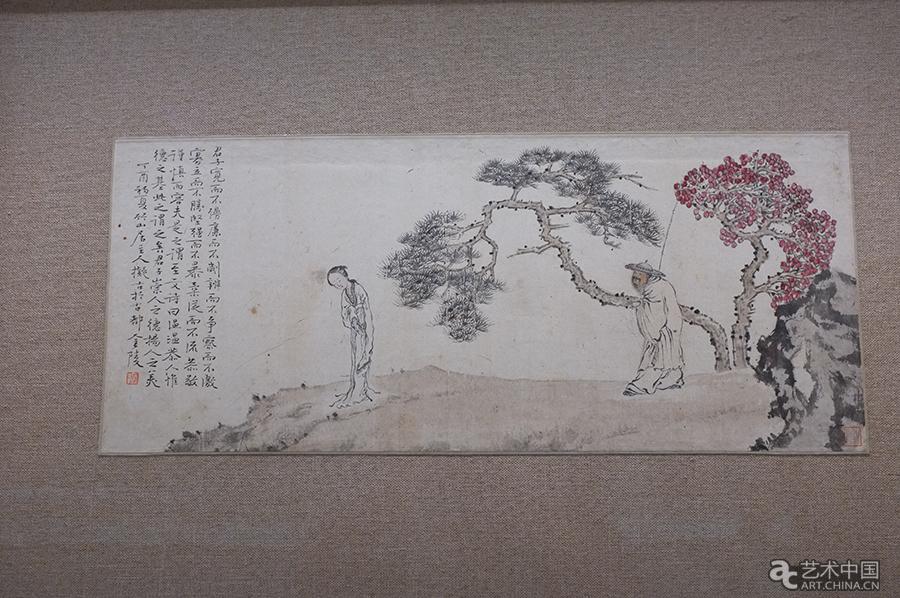 君子寬而不僈廉而不劌辯而不爭察而不激
寡立而不勝堅強而不暴柔從而不流恭敬
謹慎而容夫是之謂至文詩曰溫溫恭人惟
德之基此之謂之矣君子崇人之德揚人之美
丁酉初夏山居主人擬古於古都金陵
艺术中国
ART.CHINA.CN